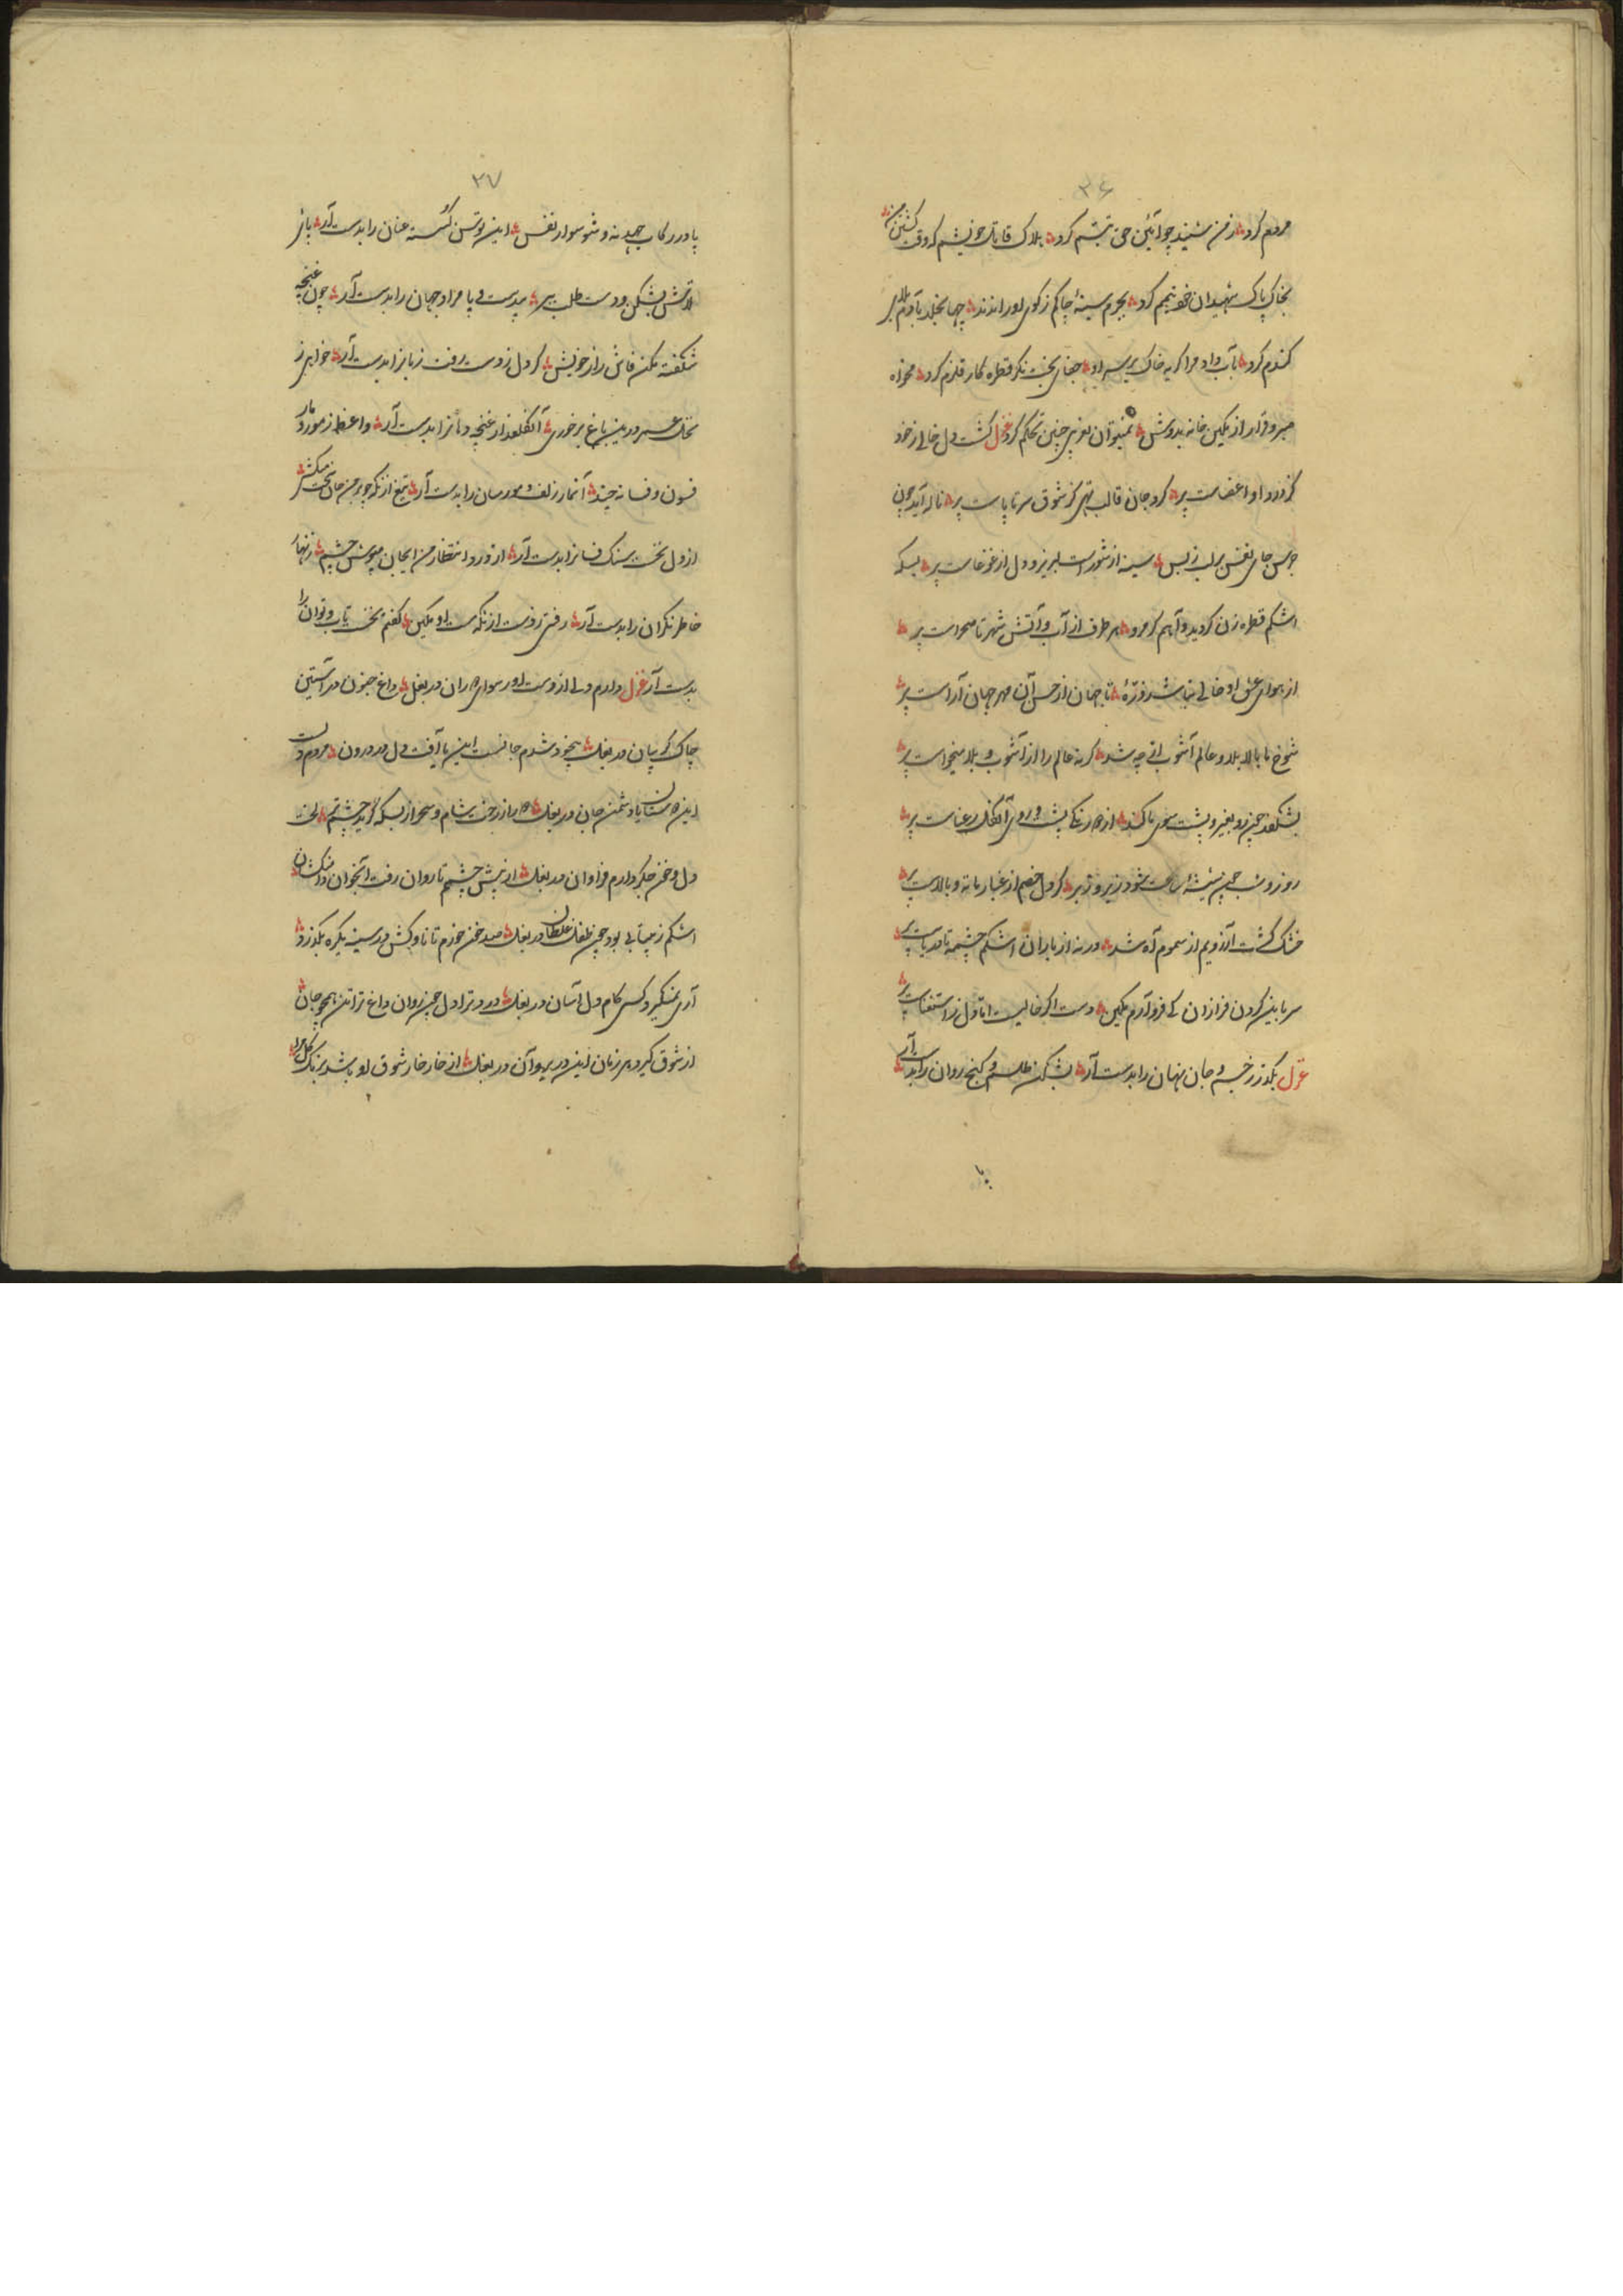 ۳۶
مردم کرد ز من شنید چو آئین حق تبسم کرد هلاک قاتل خویشم که وقت کشتن من
بخاک پاک شهیدان خو تیمم کرد بجرم سینهٔ چاکم ز کوی او راندند چها بخلد بآدم
کندم کرد بآب داد مرا گریه خاک بر سر او جفای بخت نگر قطره کار قلزم کرد مخواه
صبر و قرار از مکین خانه بدوش نمیتوان بغریبی چنین تحکم کرد غزل گشت دل خالی از خود
کز درد او اعضاست پر کرد جان قالب تهی کز شوق سر تا پاست پر ناله آید چون
جرس جای نفس بر لب ز بس سینه از شورست لبریز و دل از غوغاست پر بسکه
اشکم قطره زن گردید و آهم گرم رو هر طرف از آب و آتش شهر تا صحراست پر
از هوای عشق او خالی نباشد ذرهٔ تا جهان از حسن آن مهر جهان آراست پر
شوخ ما بالا بلا و عالم آشوب از چه شد گر نه عالم را از آشوب و بلا میخواست پر
بشکفد چین رو بغیر و پشت سوی ما کند از دو رنگی پشت و روی آن گل رعناست پر
روز و شب چون شیشهٔ ساعت شود زیر و زبر گر دل خصم از غبار ما ته و بالاست پر
خشک کشت آرزویم از سموم آه شد ور نه از باران اشکم چشمه تا دریاست پر
سر باین گردن فرازان کی فرو آرم مکین دست اگر خالیست اما دل ز استغناست پر
غزل بگذر ز جسم و جان نهان را بدست آر بشکن طلسم و گنج روان را بدست آر
۳۷
پا در رکاب جهد نه و شو سوار نفس این توسن گسسته عنان را بدست آر پای
تلاش بشکن و دست طلب ببر بیدست و پا مراد جهان را بدست آر چون غنچه
شکفته مکن فاش راز خویش گر دل ز دست رفت زبان را بدست آر خواهی ز
نخل عمر درین باغ بر خوری آن گلعذار غنچه دهان را بدست آر واعظ ز مور و مار
فسون و فسانه چند آن مار زلف و مور میان را بدست آر تیغ از نگه چو بر من جان سخت میکشی
از دل نخست سنگ فسان را بدست آر از درد انتظار من ای جان مپوش چشم زنهار
خاطر نگران را بدست آر رفتی ز دست از نگه مست او مکین گفتم نخست تاب و توان را
بدست آر غزل دارم دلی از دست او رسوای دوران در بغل داغ جنون در آستین
چاک گریبان در بغل بیخود شدم جانست این یا آفت دل در درون مردم ز دست
این دلستان یا دشمن جان در بغل دارد از رخت شام و سحر از بسکه گرید چشم تر لخت
دل و خون جگر دارم فراوان در بغل از پیش چشمم تا روان رفت آن جوان دامنکشان
اشکم ز بیتابی بود چون طفل غلطان در بغل صد خون خورم تا ناوکش در سینه یکره بگذرد
آری نمیگیرد کسی کام دل آسان در بغل درد ترا دل چون روان داغ ترا تن همچو جان
از شوق گیرد هر زمان این در بر و آن در بغل از خار خار شوق او باشد برنگ گل مرا